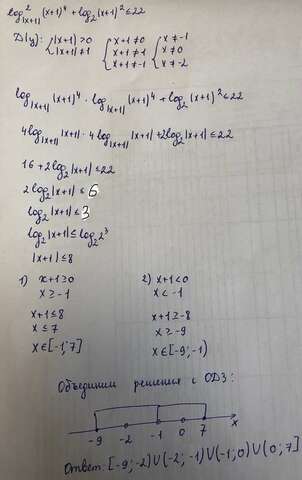 log²_{|x+1|} (x+1)⁴ + log₂(x+1)² ≤ 22
D(y): { |x+1| > 0 { x+1 ≠ 0 { x ≠ -1
|x+1| ≠ 1 x+1 ≠ 1 x ≠ 0
x+1 ≠ -1 x ≠ -2
log_{|x+1|} (x+1)⁴ · log_{|x+1|} (x+1)⁴ + log₂(x+1)² ≤ 22
4log_{|x+1|} |x+1| · 4 log_{|x+1|} |x+1| + 2log₂|x+1| ≤ 22
16 + 2log₂|x+1| ≤ 22
2 log₂|x+1| ≤ 6
log₂|x+1| ≤ 3
log₂|x+1| ≤ log₂2³
|x+1| ≤ 8
1) x+1 ≥ 0 2) x+1 < 0
x ≥ -1 x < -1
x+1 ≤ 8 x+1 ≥ -8
x ≤ 7 x ≥ -9
x∈[-1;7] x∈[-9;-1)
Объединим решения с ОДЗ:
-9 -2 -1 0 7 x
Ответ: [-9;-2)∪(-2;-1)∪(-1;0)∪(0;7]